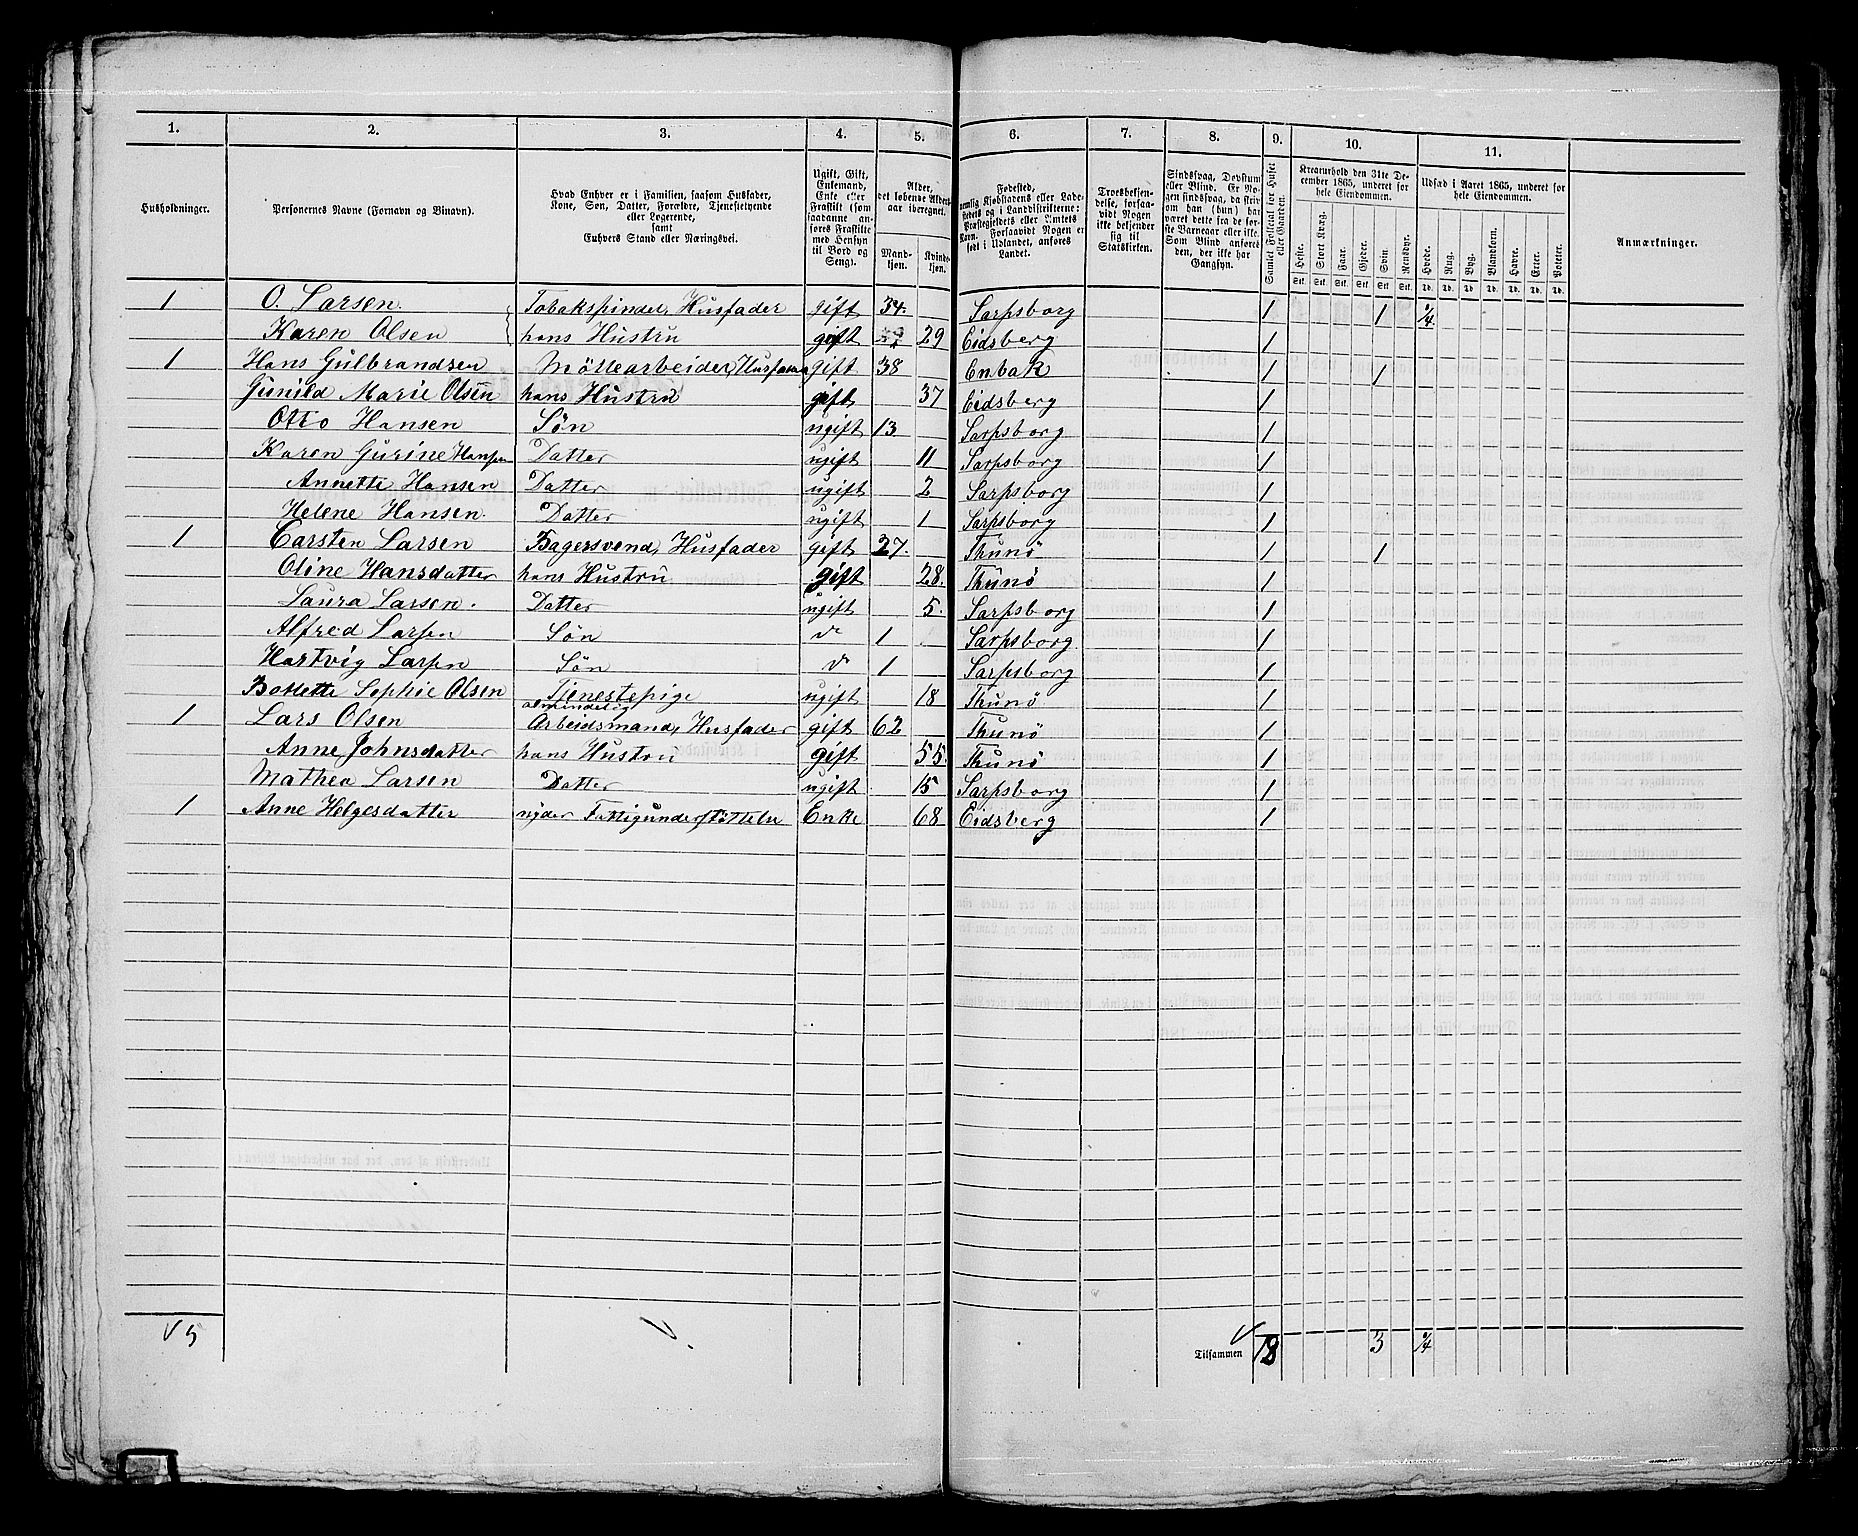 1. 2. 3. 4. 5. 6. 7. 8. 9. 10. 11.
Husholdninger. Personernes Navne (Fornavn og Binavn). Hvad Enhver er i Familien, saasom Husfader, Kone, Søn, Datter, Forældre, Tjenestetyende eller Logerende, samt Enhvers Stand eller Næringsvei. Ugift, Gift, Enkemand, Enke eller Fraskilt (som saadanne anføres Fraskilte med Hensyn til Bord og Seng). Alder, det løbende Aldersaar iberegnet. Mandkjøn. Kvindekjøn. Fødested, nemlig Kjøbstadens eller Ladestedets og i Landdistrikterne: Præstegjeldets eller Amtets Navn. Forsaavidt Nogen er født i Udlandet, anføres Landet. Troesbekjendelse, forsaavidt Nogen ikke bekjender sig til Statskirken. Sindssvag, Døvstum eller Blind. Er Nogen sindssvag, da skrives om han (hun) har været dette fra de første Barneaar eller ikke. Som Blind anføres den, der ikke har Gangsyn. Samlet Folketal for Huset eller Gaarden. Kreaturhold den 31te December 1865, underet for hele Eiendommen. Udsæd i Aaret 1865, underet for hele Eiendommen. Anmærkninger.
Heste. Stort Kvæg. Faar. Gjeder. Svin. Rensdyr. Hvede. Rug. Byg. Blandkorn. Havre. Erter. Poteter.
Stk. Stk. Stk. Stk. Stk. Stk. Td. Td. Td. Td. Td. Td. Td.
1 O. Larsen Tobakspinder, Husfader gift 34. Sarpsborg 1 1 1/4
Karen Olsen hans Hustru gift 29 Eidsberg 1
1 Hans Gulbrandsen Möllearbeider, Husfader gift 38 Enbak 1 1
Gunild Marie Olsen hans Hustru gift 37 Eidsberg 1
Otto Hansen Sön ugift 13 Sarpsborg 1
Karen Gurine Hansen Datter ugift 11 Sarpsborg 1
Annette Hansen Datter ugift 2 Sarpsborg 1
Helene Hansen Datter ugift 1 Sarpsborg 1
1 Carsten Larsen Bagersvend, Husfader gift 27. Thunö 1 1
Oline Hansdatter hans Hustru gift 28. Thunö 1
Laura Larsen. Datter ugift 5. Sarpsborg 1
Alfred Larsen Sön do 1 Sarpsborg 1
Hartvig Larsen Sön do 1 Sarpsborg 1
Bollette Sophie Olsen Tjenestepige ugift 18 Thunö 1
1 Lars Olsen almindelig Arbeidsmand, Husfader gift 62 Thunö 1
Anne Johnsdatter hans Hustru gift 55. Thunö 1
Mathea Larsen Datter ugift 15 Sarpsborg 1
1 Anne Helgesdatter nyder Fattigunderstöttelse Enke 68 Eidsberg 1
5 Tilsammen 18 3 1/4